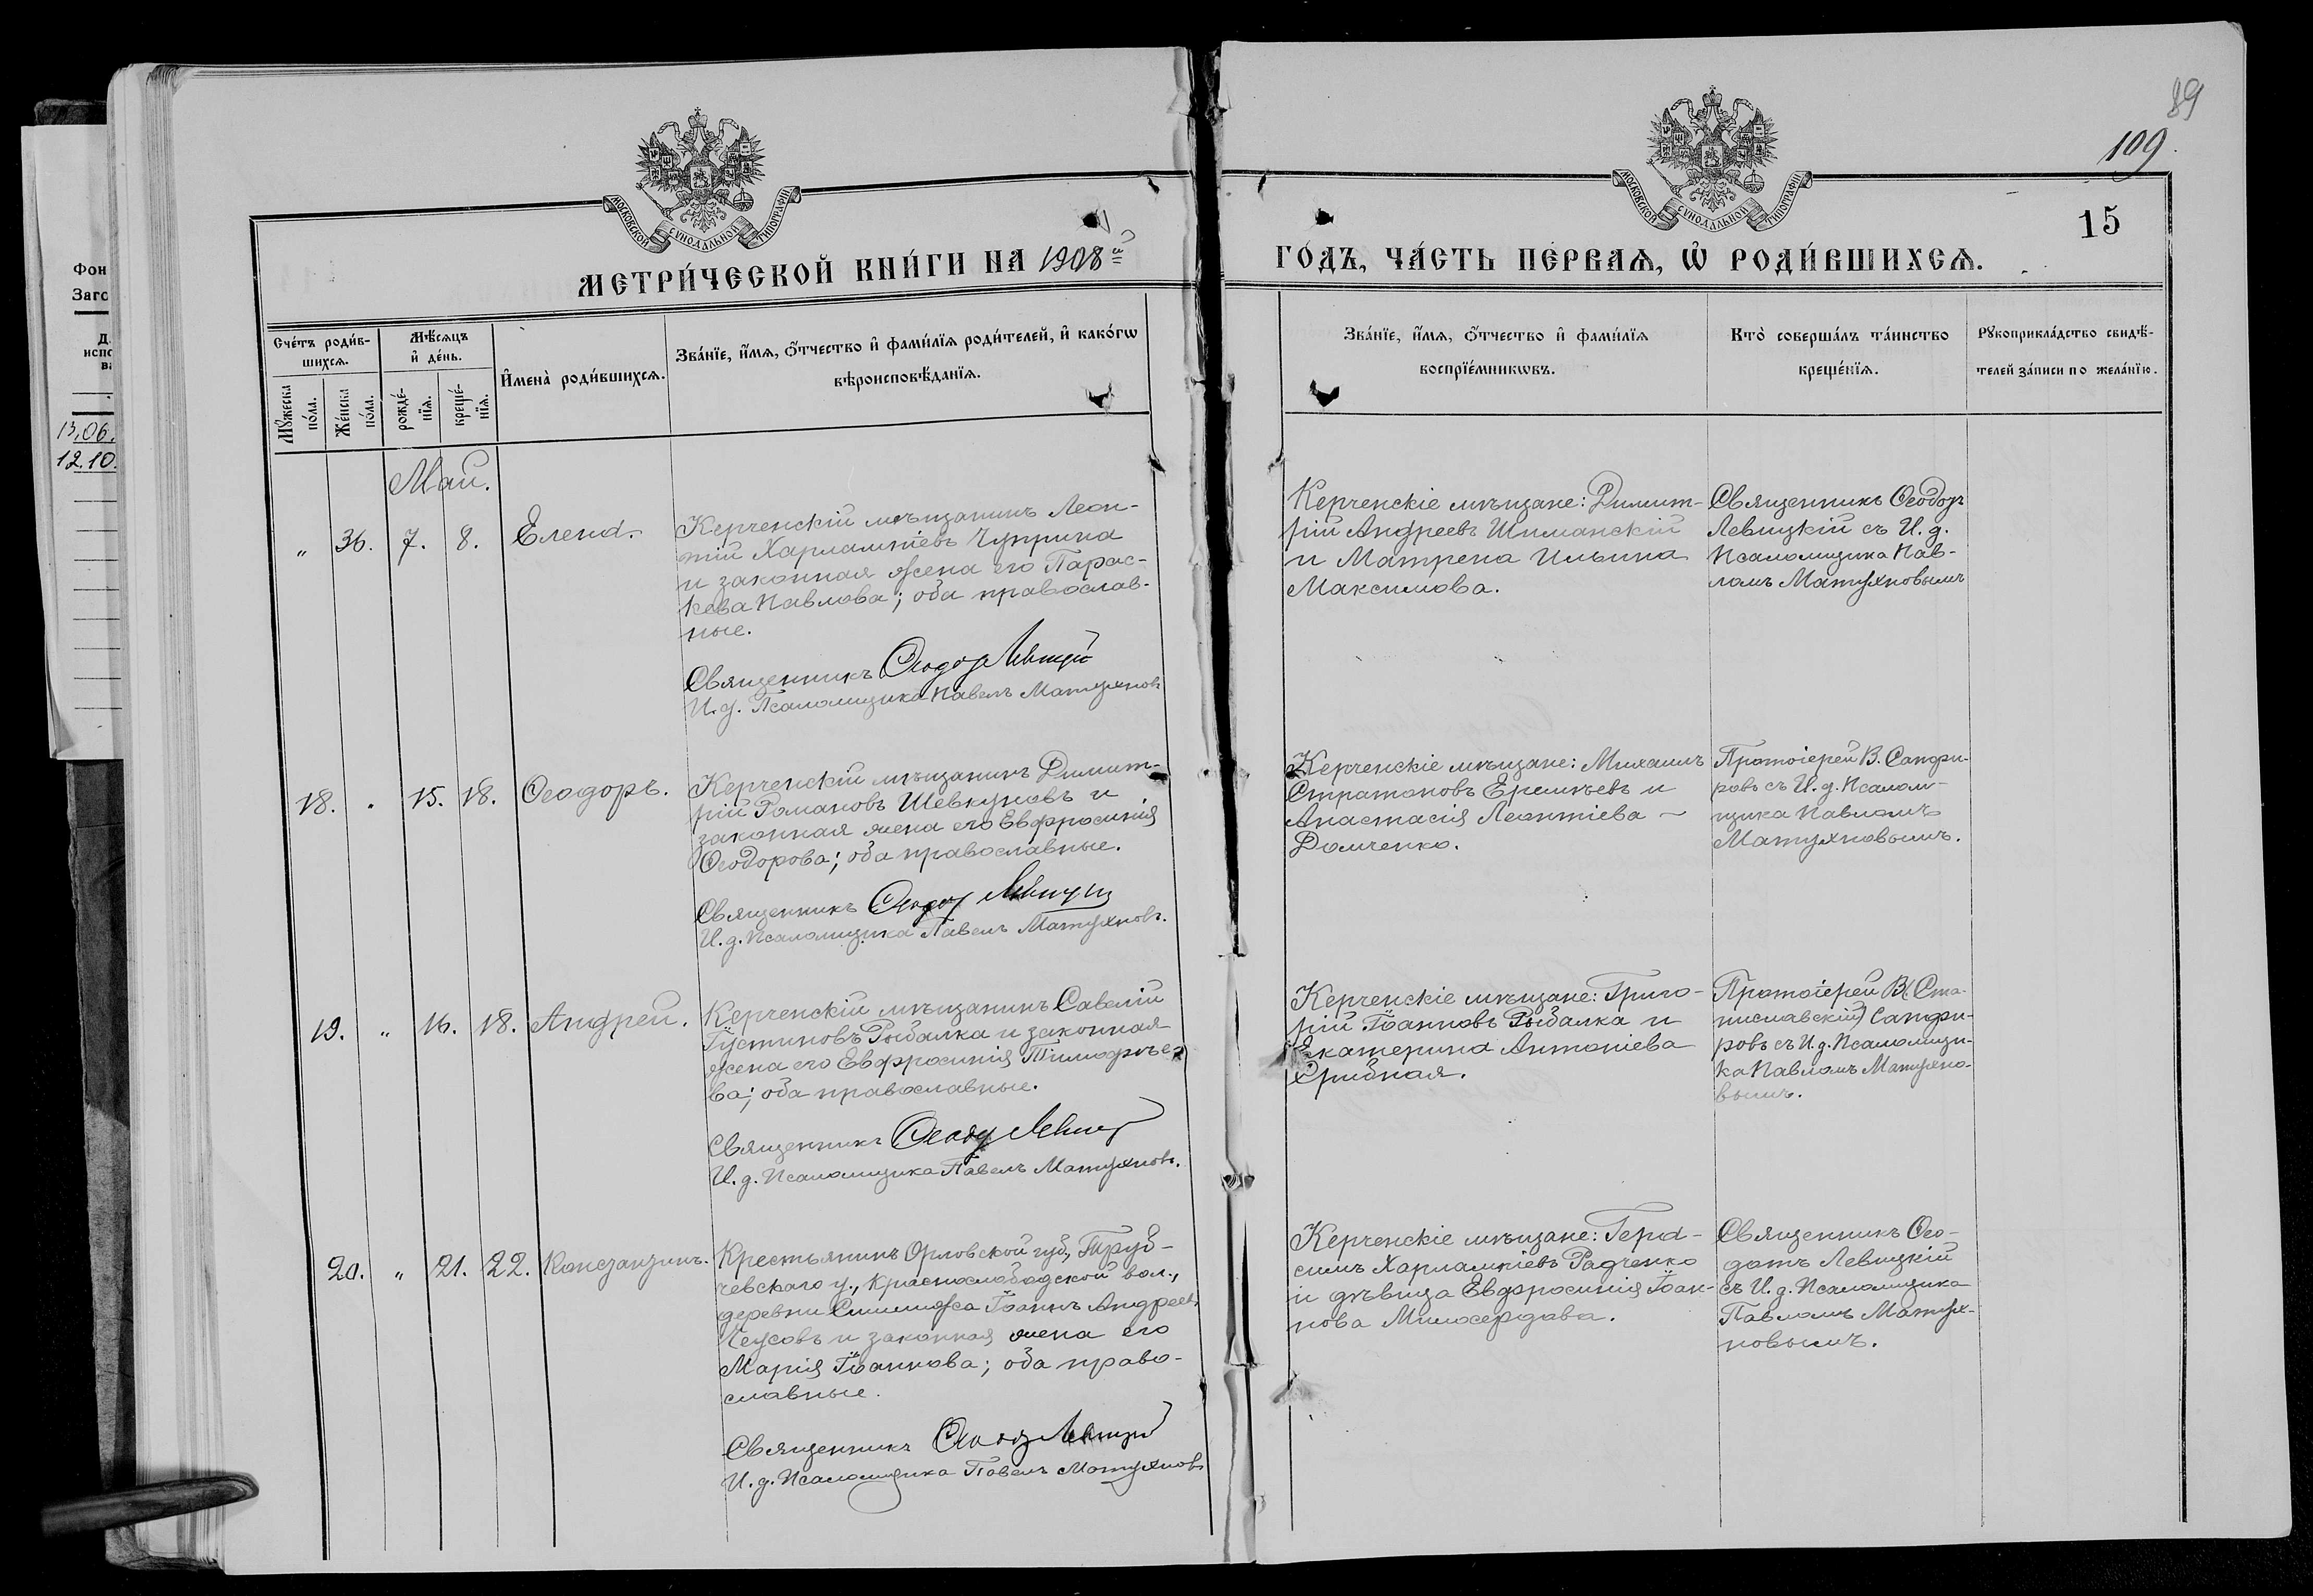 89
109.
15
МОСКОВСКОЙ СУНОДАЛЬНОЙ ТИПОГРАФІИ
МОСКОВСКОЙ СУНОДАЛЬНОЙ ТИПОГРАФІИ
МЕТРИ́ЧЕСКОЙ КНИ́ГИ НА 1908й
ГО́ДЪ, ЧА́СТЬ ПЕ́РВАѦ, Ѽ РОДИ́ВШИХСѦ.
Сче́тъ роди́в-
шихсѧ.
Мꙋ́жеска
по́ла.
Же́нска
по́ла.
Мѣ́сѧцъ
и҆ де́нь.
рожде́-
нїѧ.
креще́-
нїѧ.
И҆мена̀ роди́вшихсѧ.
Зва́нїе, и҆́мѧ, ѻ҆́тчество и҆ фами́лїѧ роди́телей, и҆ како́гѡ
вѣроисповѣ́данїѧ.
Зва́нїе, и҆́мѧ, ѻ҆́тчество и҆ фами́лїѧ
воспрїе́мникѡвъ.
Кто̀ соверша́лъ та́инство
креще́нїѧ.
Рꙋкоприкла́дство свидѣ́-
телей за́писи по жела́нїю.
Фон
Заго
13.06.
12.10.
Май.
„ 36. 7. 8. Елена.
Керченскій мѣщанинъ Леон-
тій Харлампіевъ Чуприна
и законная жена его Парас-
кева Павлова; оба православ-
ные.
Священникъ Ѳеодоръ Левицкій
И. д. Псаломщика Павелъ Матухновъ
Керченскіе мѣщане: Димит-
рій Андреевъ Шиманскій
и Матрена Ильина
Максимова.
Священникъ Ѳеодоръ
Левицкій съ И. д.
Псаломщика Пав-
ломъ Матухновымъ
18. „ 15. 18. Ѳеодоръ.
Керченскій мѣщанинъ Димит-
рій Романовъ Шевкуновъ и
законная жена его Евфросинія
Ѳеодорова; оба православные.
Священникъ Ѳеодоръ Левицкій
И. д. Псаломщика Павелъ Матухновъ.
Керченскіе мѣщане: Михаилъ
Стратоновъ Еремѣевъ и
Анастасія Леонтіева –
Домченко.
Протоіерей В. Сапфи-
ровъ съ И. д. Псалом-
щика Павломъ
Матухновымъ.
19. „ 16. 18. Андрей.
Керченскій мѣщанинъ Савелій
Іустиновъ Рыбалка и законная
жена его Евфросинія Тимофѣе-
ва; оба православные.
Священникъ Ѳеодоръ Левицкій
И. д. Псаломщика Павелъ Матухновъ.
Керченскіе мѣщане: Григо-
рій Іоанновъ Рыбалка и
Екатерина Антоніева
Срибная.
Протоіерей В. (Ста-
ниславскій) Сапфи-
ровъ съ И. д. Псаломщи-
ка Павломъ Матухно-
вымъ.
20. „ 21. 22. Константинъ.
Крестьянинъ Орловской губ., Труб-
чевскаго у., Краснослободской вол.,
деревни Іоаннъ Андреевъ
Чеусовъ и законная жена его
Марія Іоаннова; оба право-
славные.
Священникъ Ѳеодоръ Левицкій
И. д. Псаломщика Павелъ Матухновъ
Керченскіе мѣщане: Гера-
симъ Харлампіевъ Радченко
и дѣвица Евфросинія Іоан-
нова Милосердова.
Священникъ Ѳео-
доръ Левицкій
съ И. д. Псаломщика
Павломъ Матух-
новымъ.